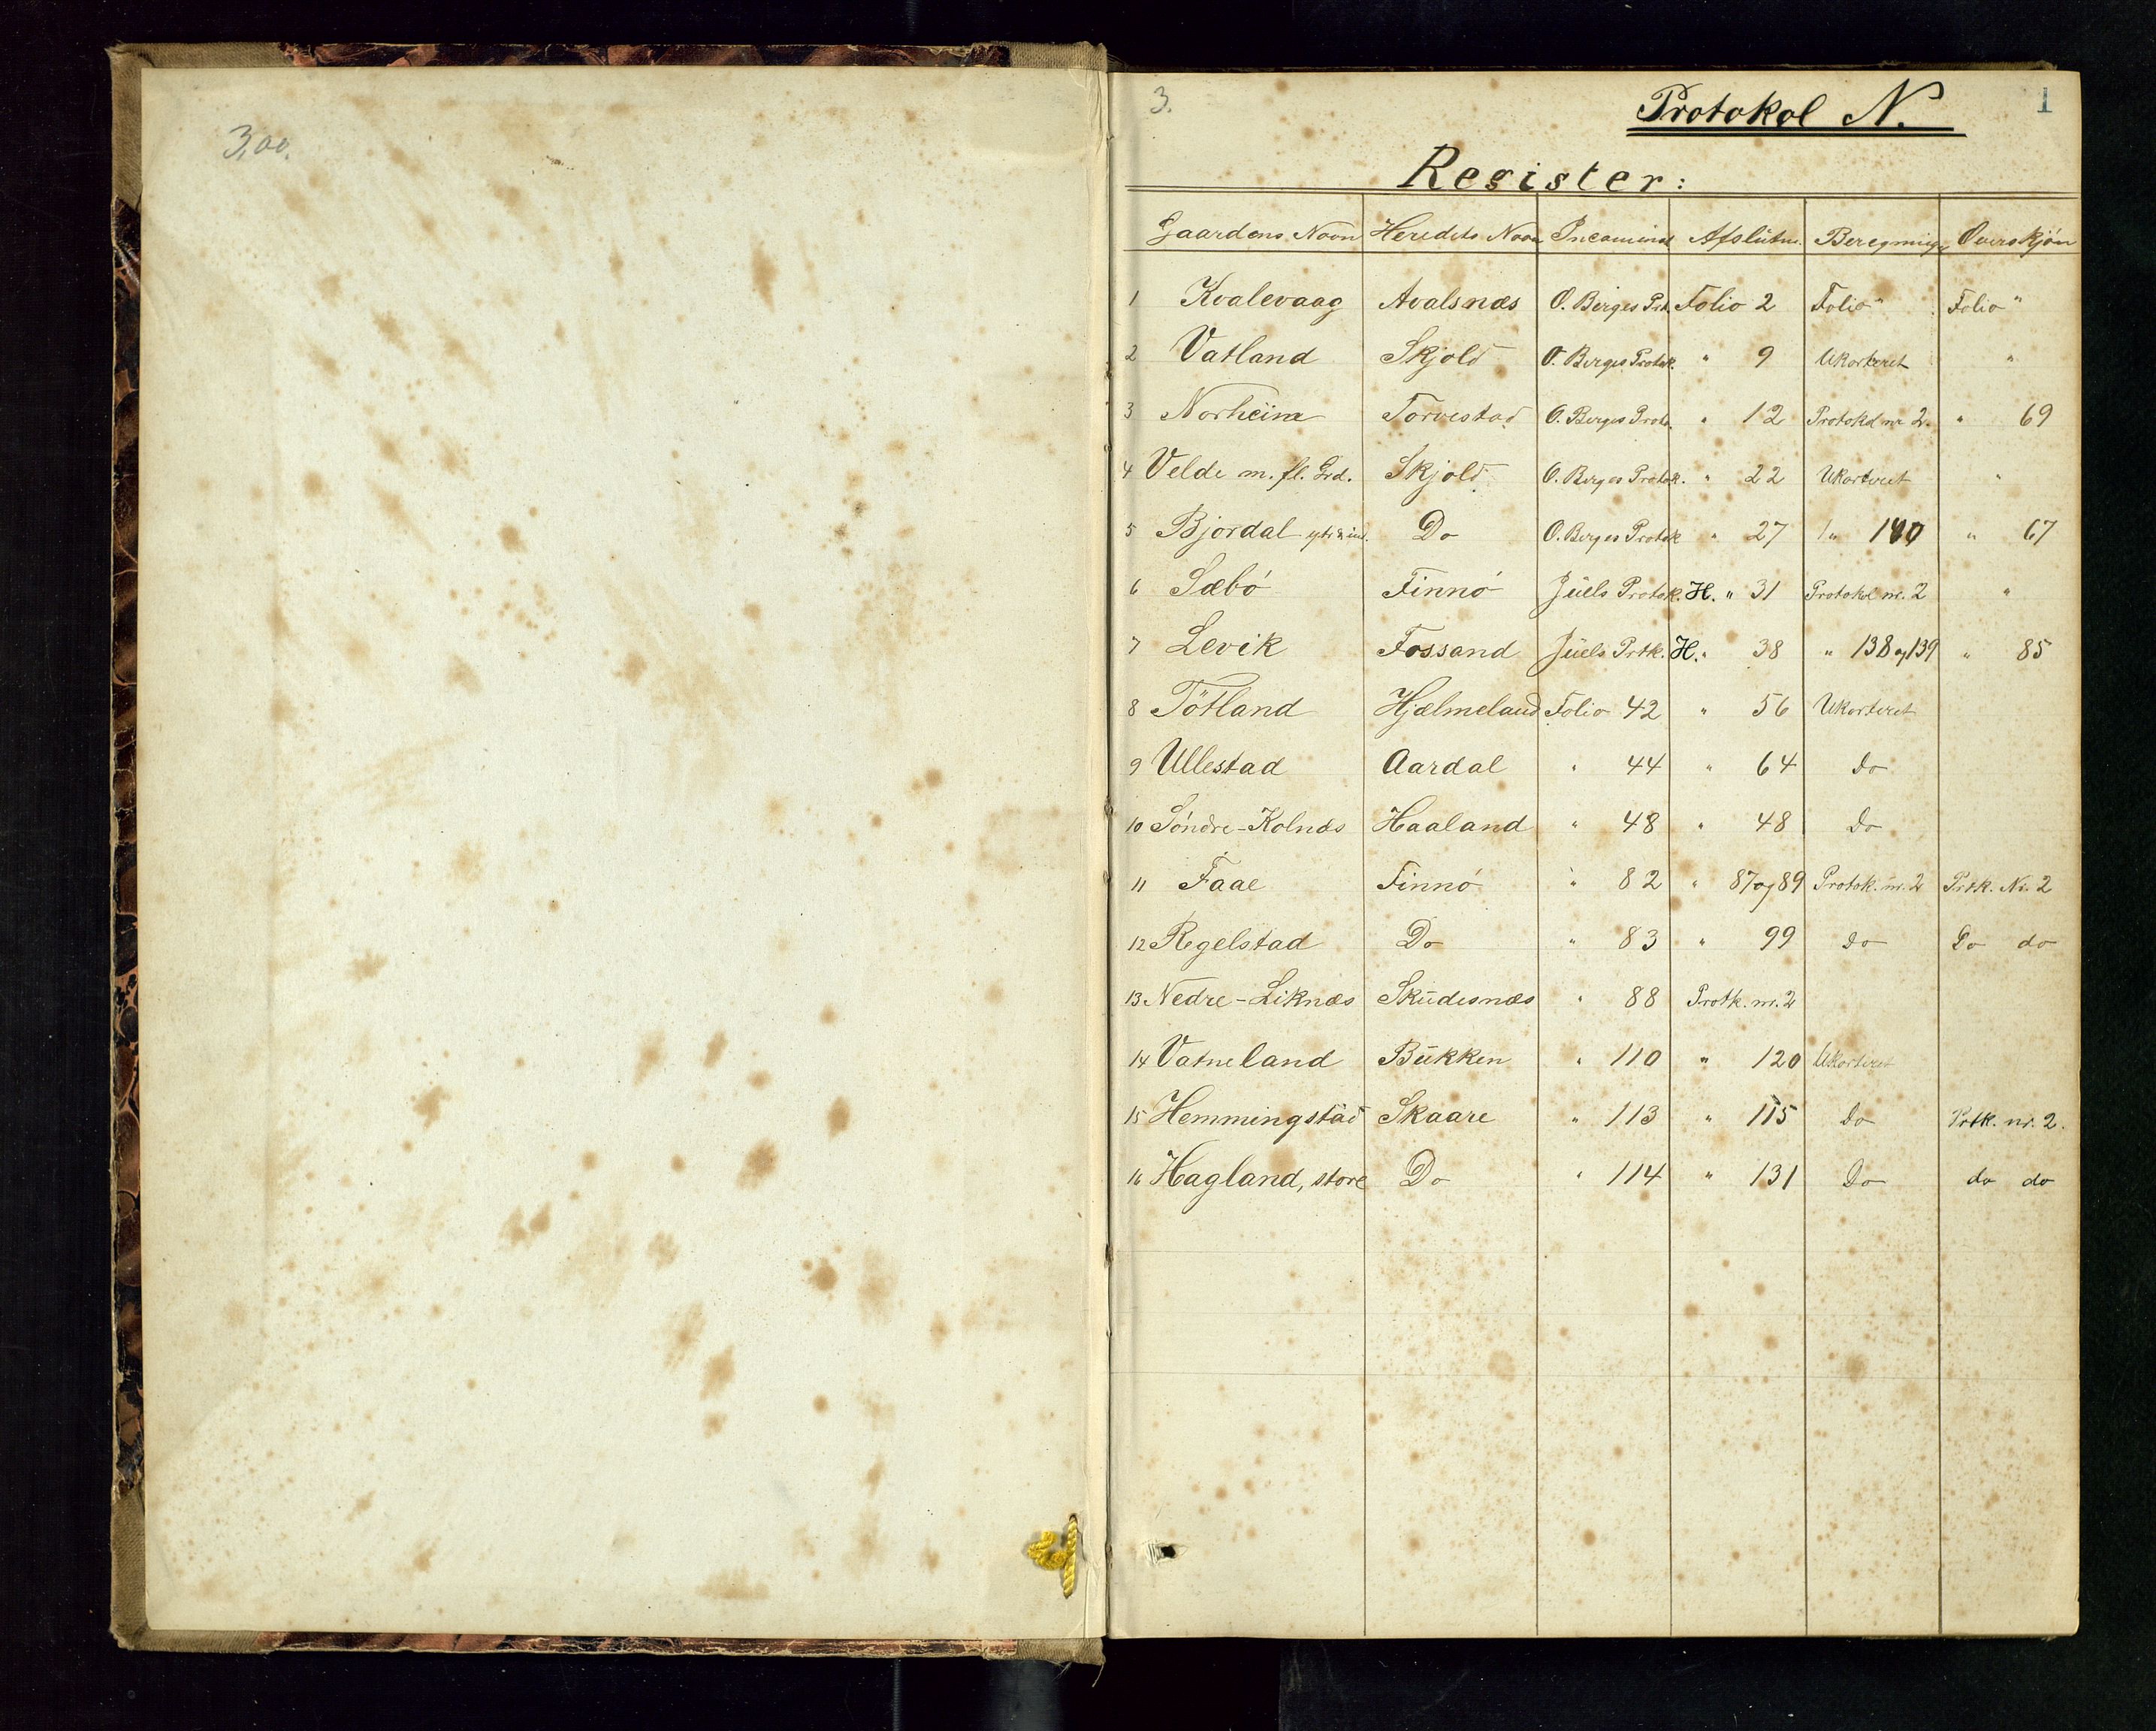 3,00.
3.
Protokol N.
1
Register:
Gaardens Navn Heredets Navn Incaminat Afslutn. Beregning Overskjøn
1 Kvalevaag Avalsnæs O. Berges Prt. Folio 2 Folio " Folio "
2 Vatland Skjold O. Berges Protok. " 9 Ukorteret "
3 Norheim Torvestad O. Berges Proto. " 12 Protokol nr 2. " 69
4 Velde m. fl. Grd. Skjold O. Berges Protok. " 22 Ukorteret "
5 Bjordal ytr & ind. Do O. Berges Protok " 27 " 140 " 67
6 Sæbö Finnö Jüels Protok. H. " 31 Protokol nr. 2 "
7 Levik Fossand Jüels Prtk. H. " 38 " 138 og 139 " 85
8 Tötland Hjælmeland Folio 42 " 56 Ukorteret
9 Ullestad Aardal " 44 " 64 do
10 Söndre-Kolnæs Haaland " 48 " 48 do
11 Faae Finnö " 82 " 87 og 89 Protok. nr. 2 Prtk. Nr. 2
12 Regelstad Do " 83 " 99 do Do do
13 Nedre-Liknæs Skudesnæs " 88 Protk. nr. 2
14 Vatneland Bukken " 110 " 120 Ukorteret
15 Hemmingstad Skaare " 113 " 115 Do Prtk. nr. 2.
16 Hagland, store Do " 114 " 131 Do do do